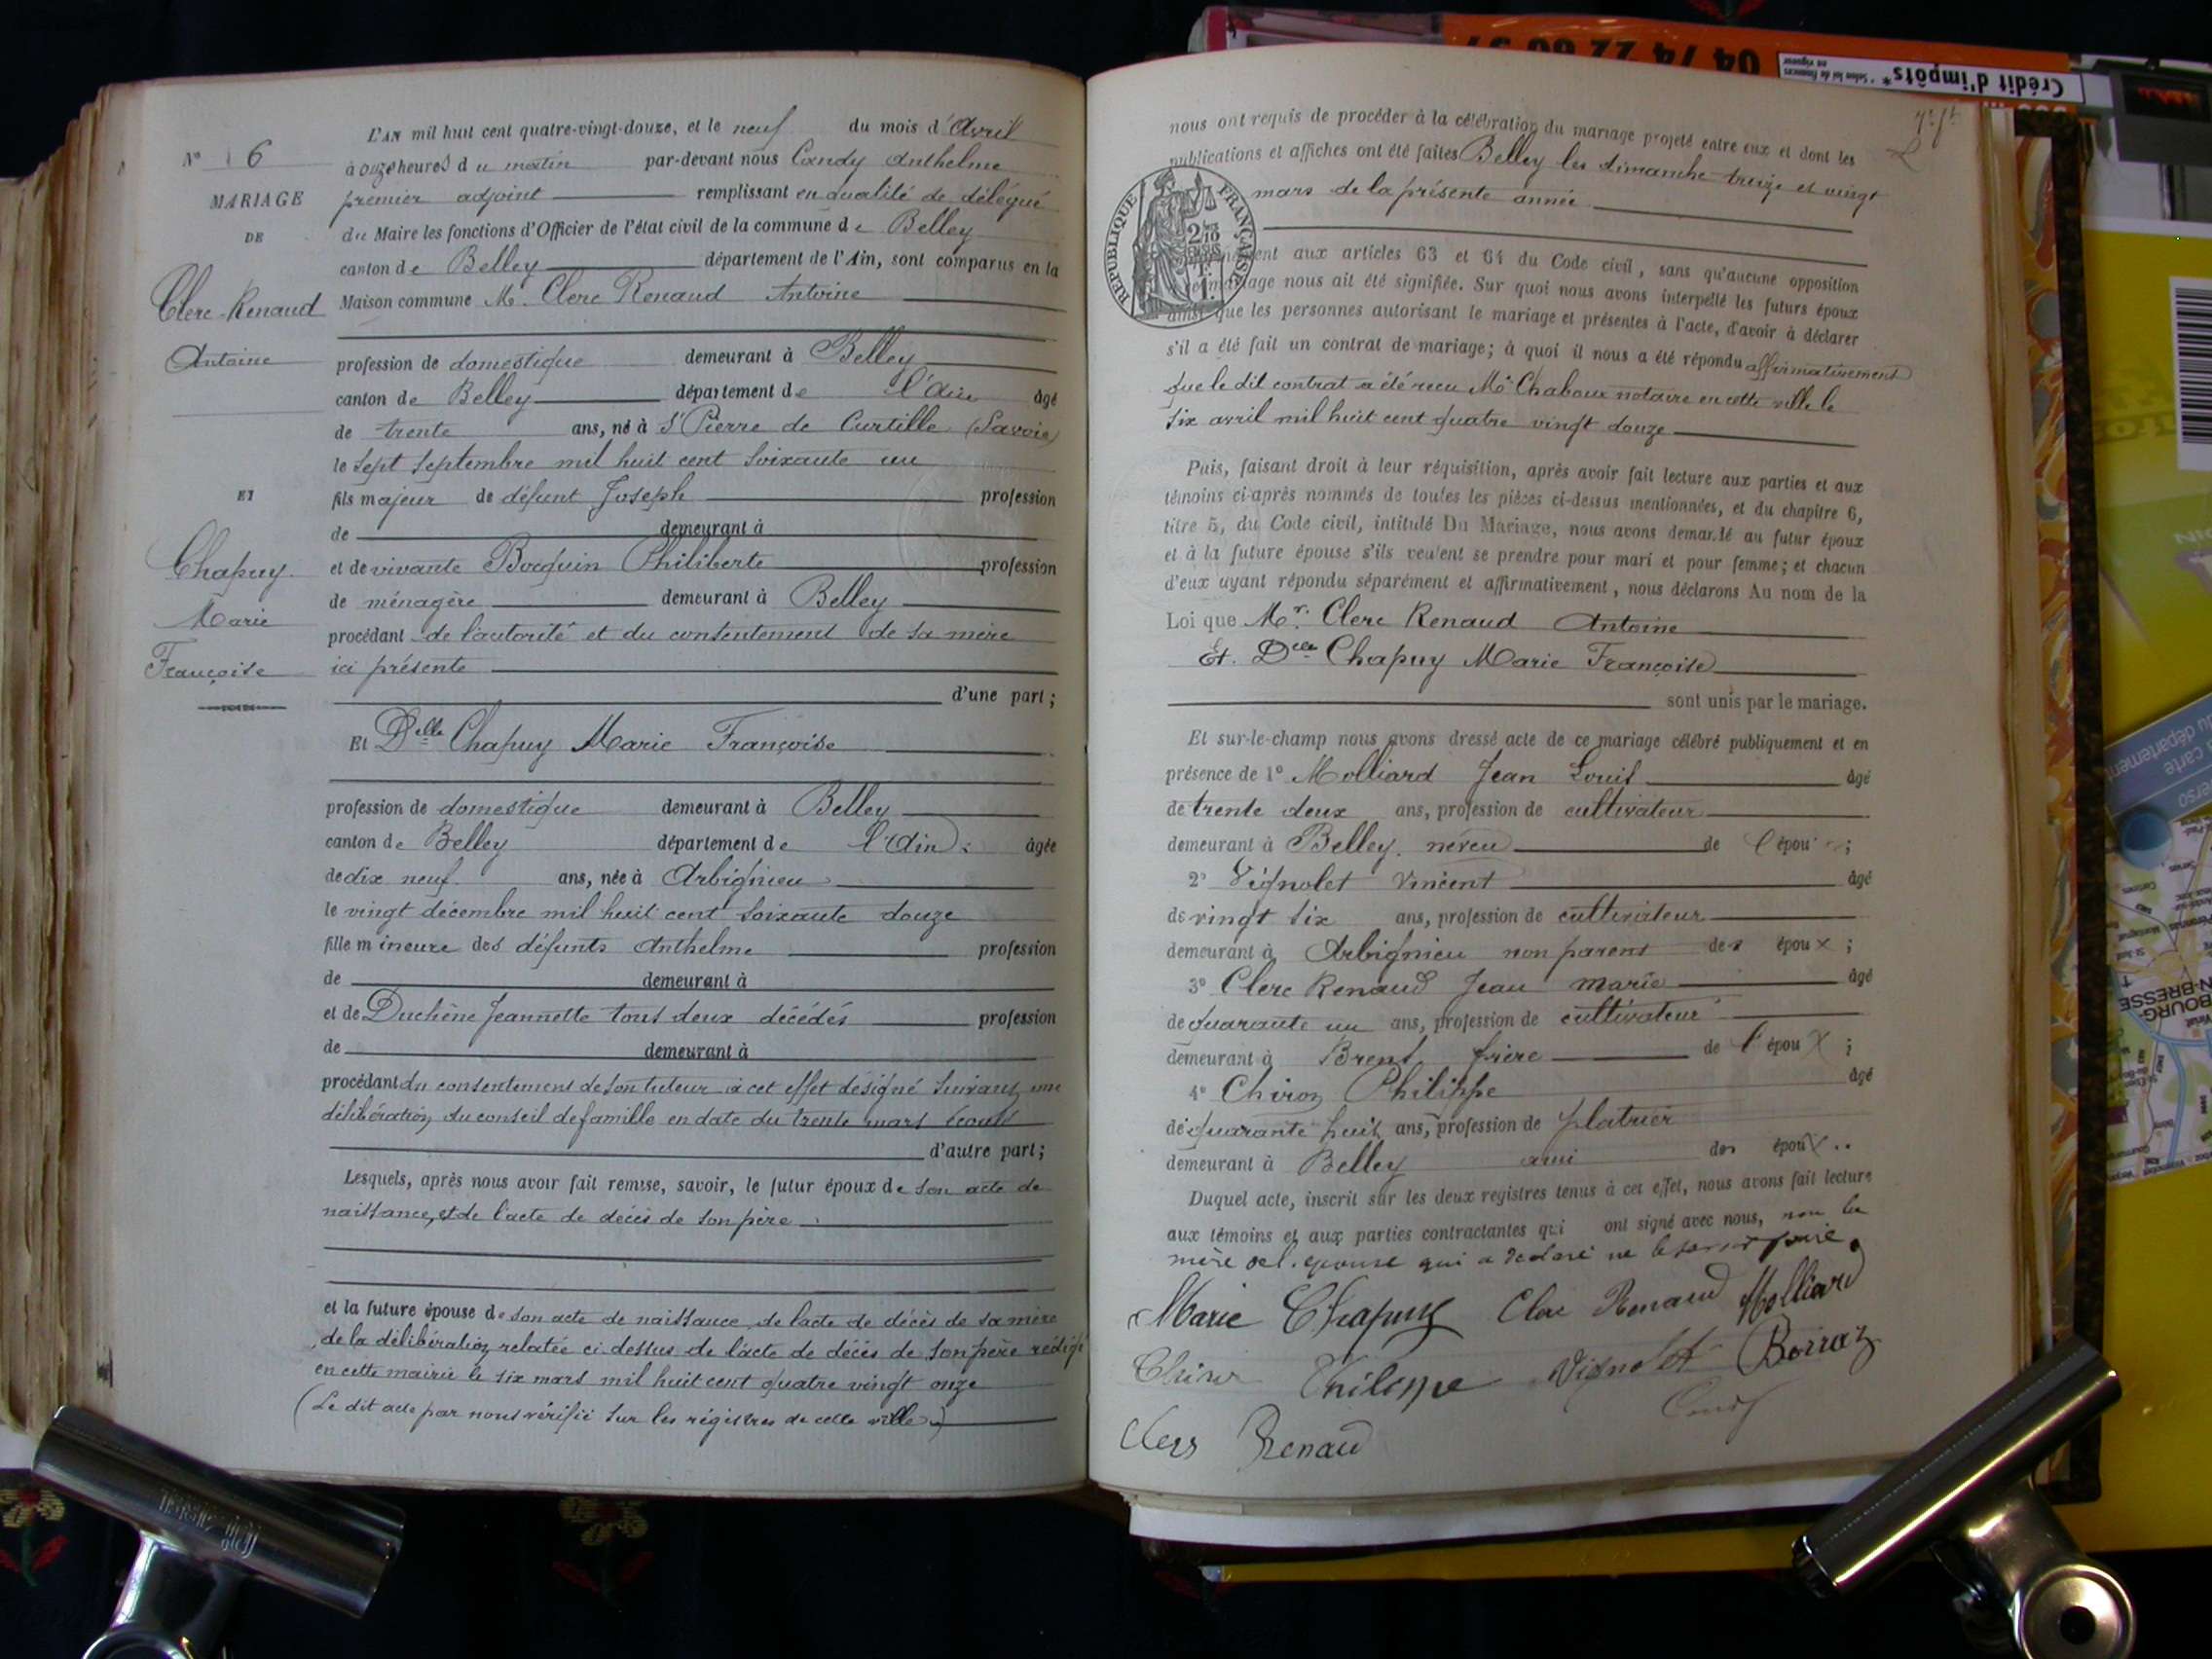 L'AN mil huit cent quatre-vingt-douze, et le neuf du mois d'Avril
N° 6
à onze heures du matin par-devant nous Candy Anthelme
MARIAGE
premier adjoint remplissant en qualité de délégué
DE
du Maire les fonctions d'Officier de l'état civil de la commune de Belley
canton de Belley département de l'Ain, sont comparus en la
Clerc-Renaud
Maison commune Mr. Clerc Renaud Antoine
Antoine
profession de domestique demeurant à Belley
canton de Belley département de l'Ain âgé
de trente ans, né à St Pierre de Curtille (Savoie)
le sept septembre mil huit cent soixante un
ET
fils majeur de défunt Joseph profession
de demeurant à
Chapuy
et de vivante Bocquin Philiberte profession
de ménagère demeurant à Belley
Marie
procédant de l'autorité et du consentement de sa mère
Françoise
ici présente
d'une part;
Et Delle Chapuy Marie Françoise
profession de domestique demeurant à Belley
canton de Belley département de l'Ain âgée
de dix neuf ans, née à Arbignieu
le vingt décembre mil huit cent soixante douze
fille mineure des défunts Anthelme profession
de demeurant à
et de Duchêne Jeannette tous deux décédés profession
de demeurant à
procédant du consentement de son tuteur à cet effet désigné suivant une
délibération du conseil de famille en date du trente mars écoulé
d'autre part;
Lesquels, après nous avoir fait remise, savoir, le futur époux de son acte de
naissance, et de l'acte de décès de son père
et la future épouse de son acte de naissance, de l'acte de décès de sa mère
de la délibération relatée ci-dessus de l'acte de décès de son père rédigé
en cette mairie le six mars mil huit cent quatre vingt onze
(Le dit acte par nous vérifié sur les régistres de cette ville)
nous ont requis de procéder à la célébration du mariage projeté entre eux et dont les
publications et affiches ont été faites Belley les dimanche treize et vingt
mars de la présente année
RÉPUBLIQUE FRANÇAISE
aux articles 63 et 64 du Code civil, sans qu'aucune opposition
mariage nous ait été signifiée. Sur quoi nous avons interpellé les futurs époux
ainsi que les personnes autorisant le mariage et présentes à l'acte, d'avoir à déclarer
s'il a été fait un contrat de mariage; à quoi il nous a été répondu affirmativement
que le dit contrat a été reçu Me Chaboux notaire en cette ville le
six avril mil huit cent quatre vingt douze
Puis, faisant droit à leur réquisition, après avoir fait lecture aux parties et aux
témoins ci-après nommés de toutes les pièces ci-dessus mentionnées, et du chapitre 6,
titre 5, du Code civil, intitulé Du Mariage, nous avons demandé au futur époux
et à la future épouse s'ils veulent se prendre pour mari et pour femme; et chacun
d'eux ayant répondu séparément et affirmativement, nous déclarons Au nom de la
Loi que Mr. Clerc Renaud Antoine
Et. Delle Chapuy Marie Françoise
sont unis par le mariage.
Et sur-le-champ nous avons dressé acte de ce mariage célébré publiquement et en
présence de 1° Molliard Jean Louis âgé
de trente deux ans, profession de cultivateur
demeurant à Belley. néveu de l'épou ;
2° Vignolet Vincent âgé
de vingt six ans, profession de cultivateur
demeurant à Arbignieu non parent des époux ;
3° Clerc Renaud Jean marie âgé
de quarante un ans, profession de cultivateur
demeurant à Brens frère de l'époux ;
4° Chiron Philippe âgé
de quarante huit ans, profession de platrier
demeurant à Belley ami des époux
Duquel acte, inscrit sur les deux registres tenus à cet effet, nous avons fait lecture
aux témoins et aux parties contractantes qui ont signé avec nous, non la
mère de l'épouse qui a déclaré ne le savoir faire.
Marie Chapuy Clerc Renaud Molliard
Philippe Vignolet
Candy
Clers Renaud
04 74 22 80 57
Crédit d'impôts*